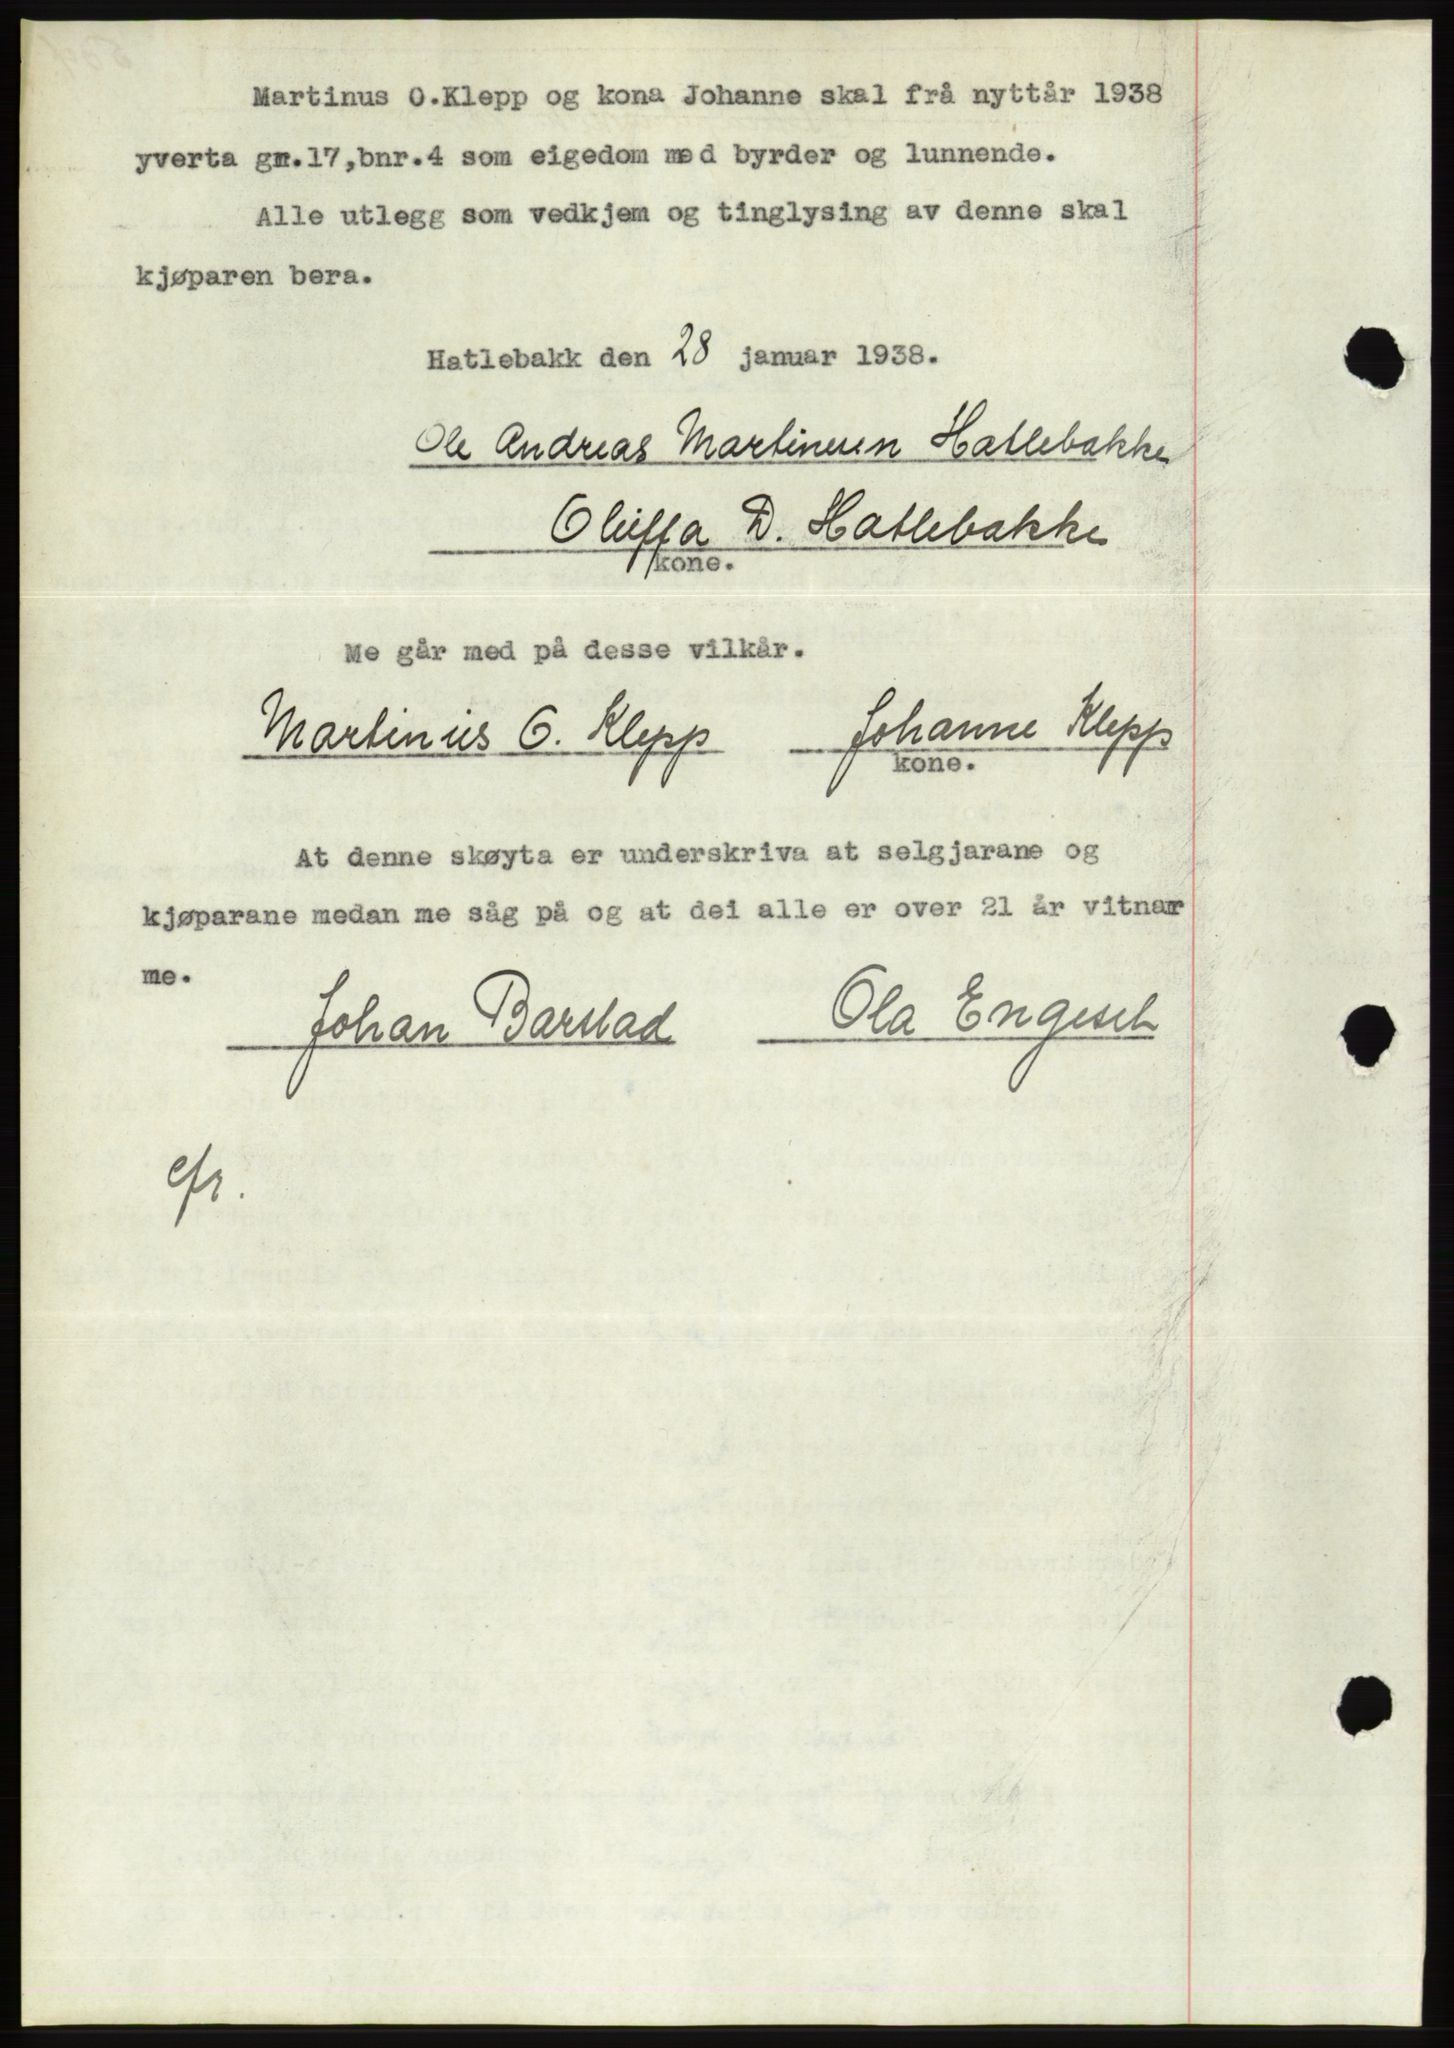 Martinus O.Klepp og kona Johanne skal frå nyttår 1938
yverta gnr.17,bnr.4 som eigedom med byrder og lunnende.
Alle utlegg som vedkjem og tinglysing av denne skal
kjøparen bera.
Hatlebakk den 28 januar 1938.
Ole Andreas Martinusen Hatlebakke
Oluffa D. Hatlebakke
kone.
Me går med på desse vilkår.
Martinus O. Klepp Johanne Klepp
kone.
At denne skøyta er underskriva at selgjarane og
kjøparane medan me såg på og at dei alle er over 21 år vitnar
me.
Johan Barstad Ola Engeset
cfr.